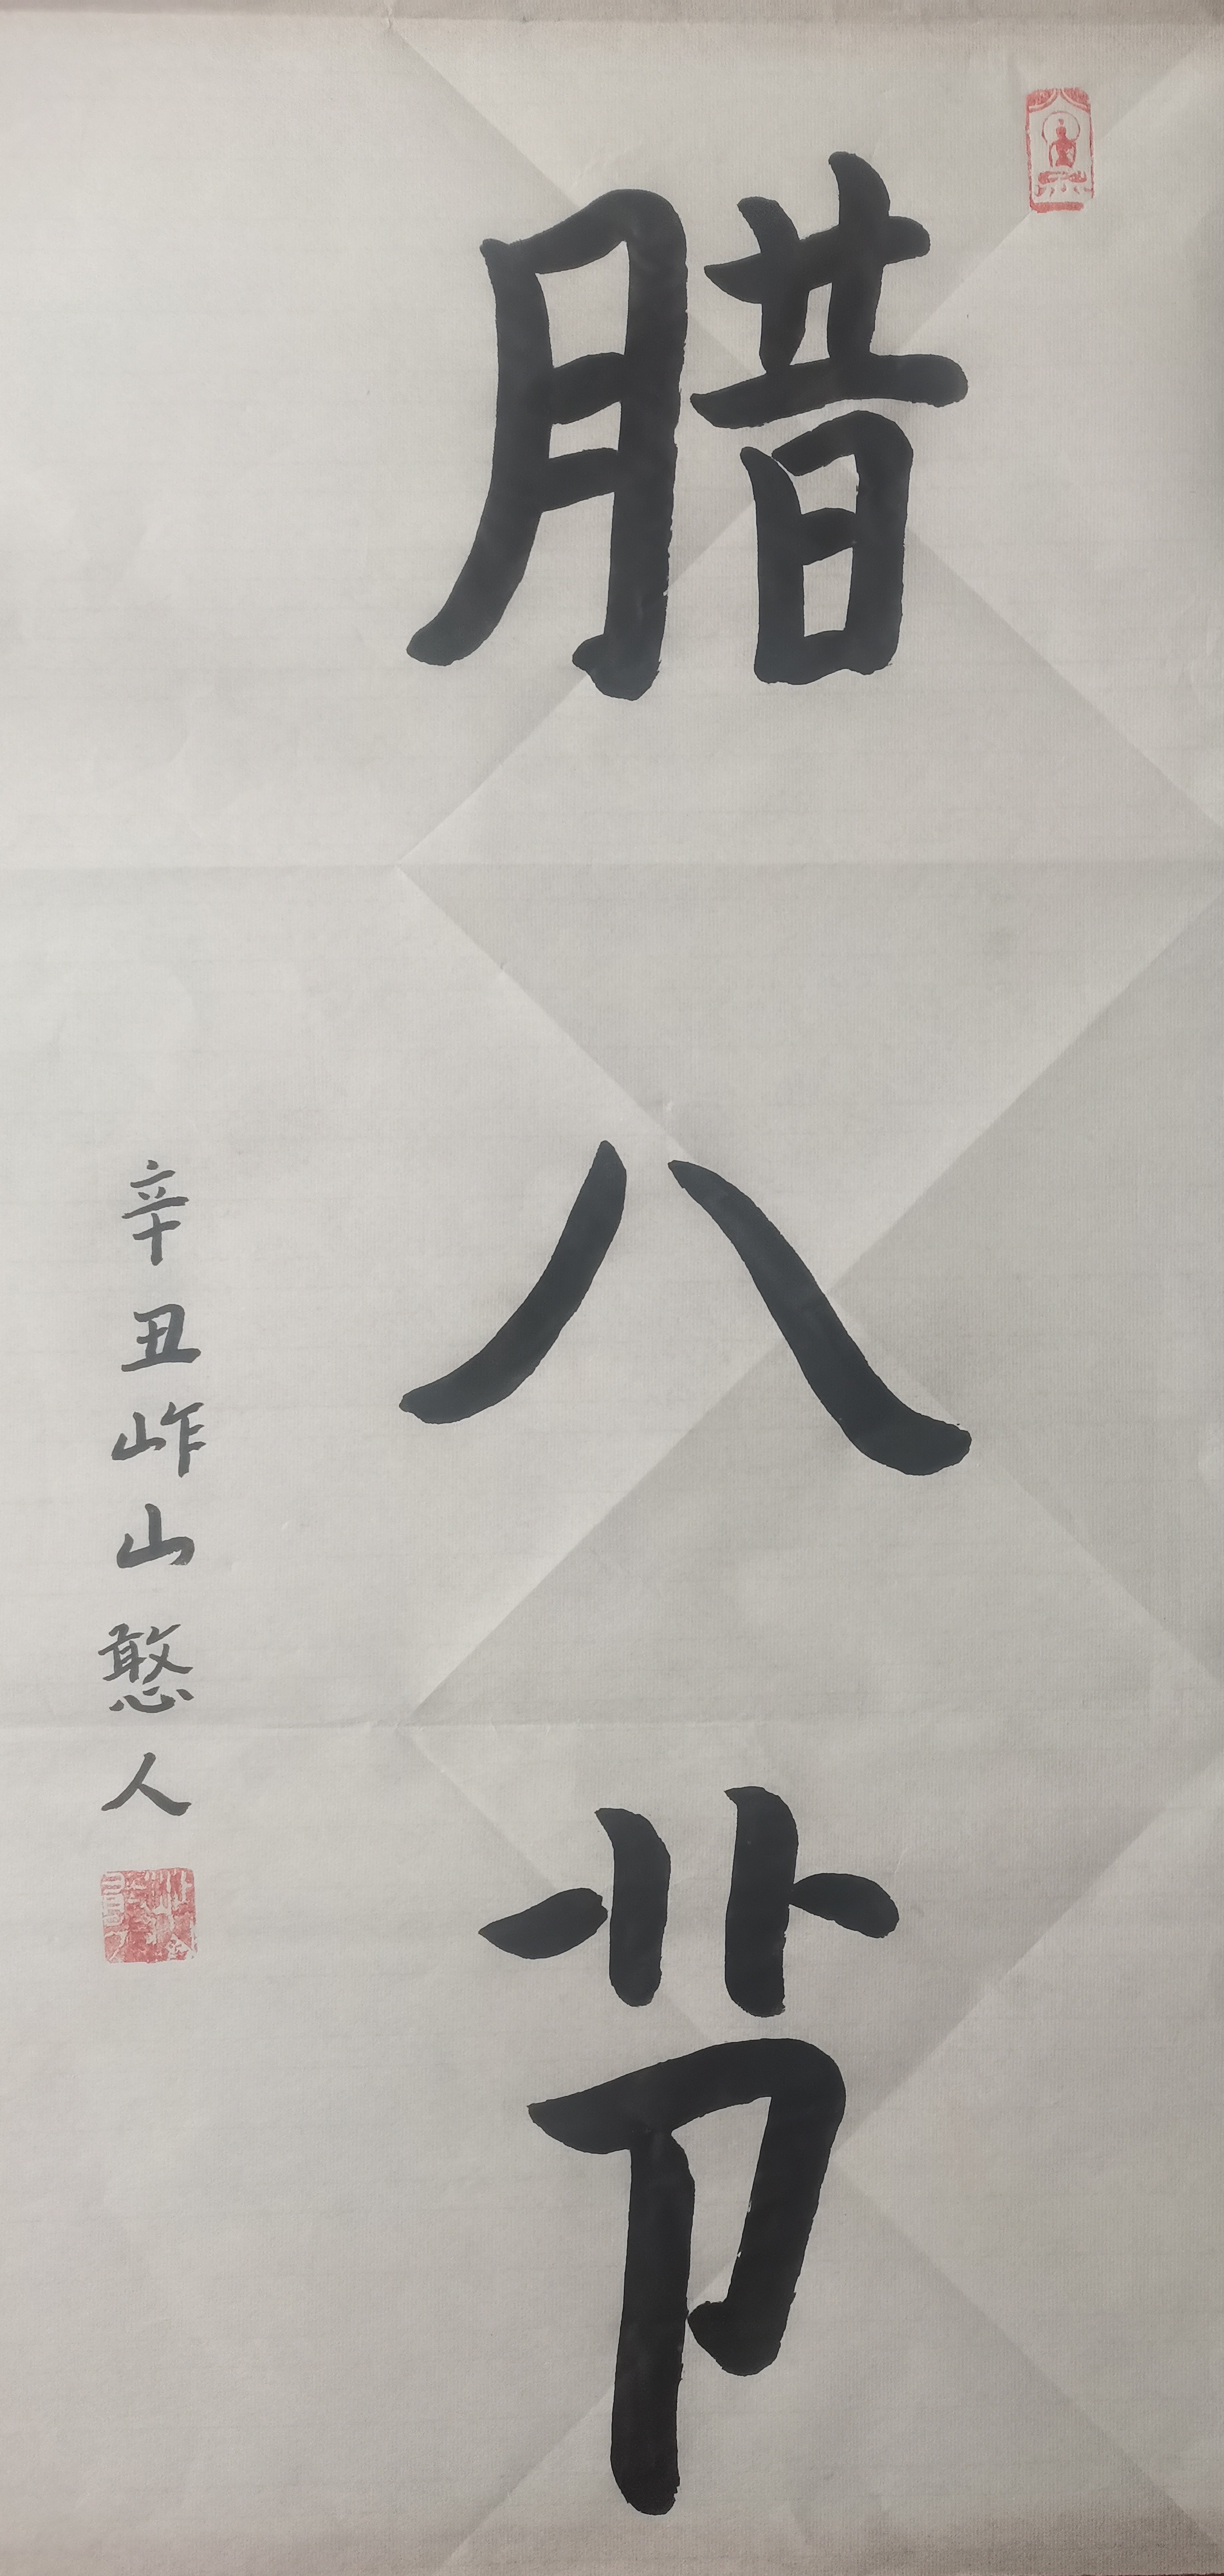 腊八节
辛丑岞山憨人